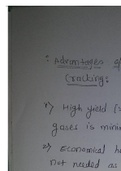 : Advantages of
Cracking:
1) High yield (
gases is mini
2) Economical
not needed as